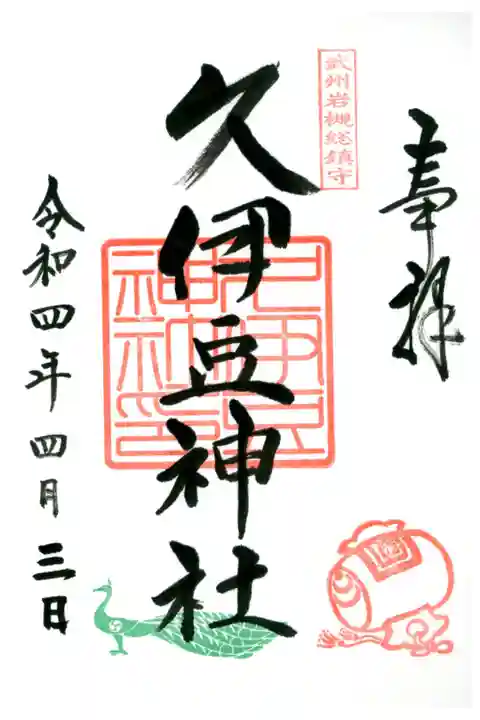 奉拝
武州岩槻総鎮守
久伊豆神社
久伊豆
神社印
令和四年四月三日